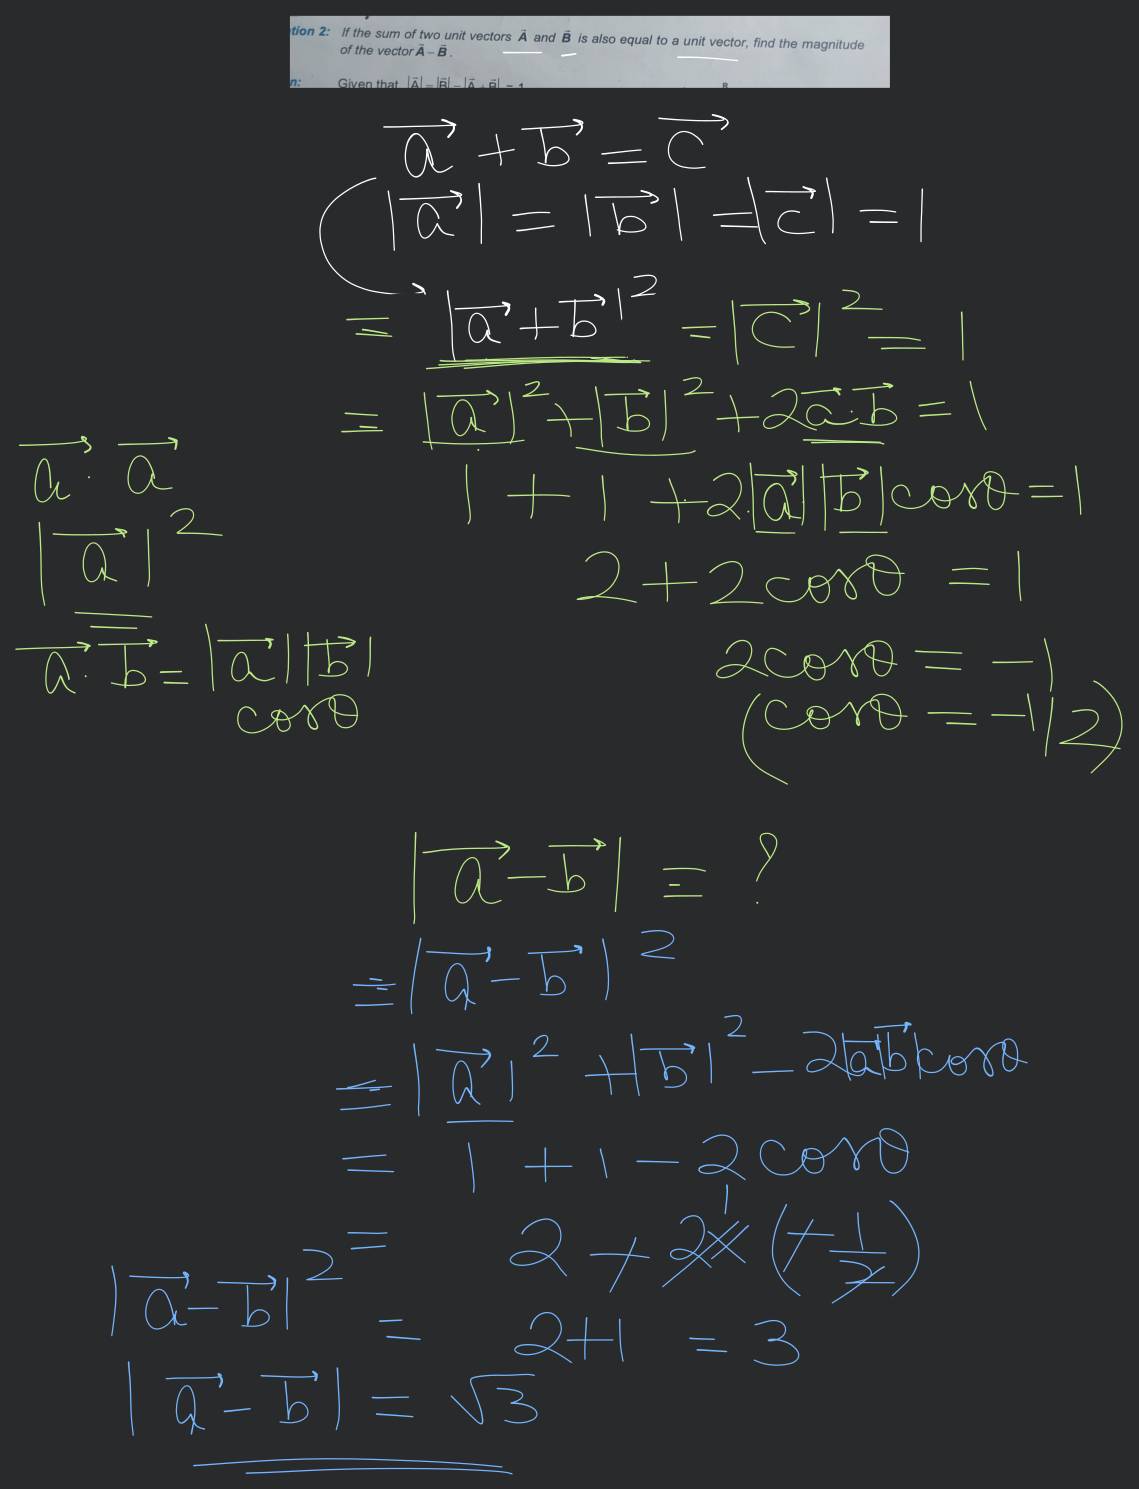 tion 2: If the sum of two unit vectors A⃗ and B⃗ is also equal to a unit vector, find the magnitude
of the vector A⃗ – B⃗ .
n: Given that |A⃗| = |B⃗| = |A⃗ + B⃗| = 1
B
a⃗ + b⃗ = c⃗
|a⃗| = |b⃗| = |c⃗| = 1
= |a⃗ + b⃗|² = |c⃗|² = 1
= |a⃗|² + |b⃗|² + 2a⃗·b⃗ = 1
1 + 1 + 2·|a⃗||b⃗|cosθ = 1
2 + 2cosθ = 1
2cosθ = -1
(cosθ = -1/2)
a⃗ · a⃗
|a⃗|²
a⃗ · b⃗ = |a⃗||b⃗|
cosθ
|a⃗ - b⃗| = ?
= |a⃗ - b⃗|²
= |a⃗|² + |b⃗|² - 2|a⃗||b⃗|cosθ
= 1 + 1 - 2cosθ
= 2 - 2×(-1/2)
|a⃗ - b⃗|² = 2+1 = 3
|a⃗ - b⃗| = √3